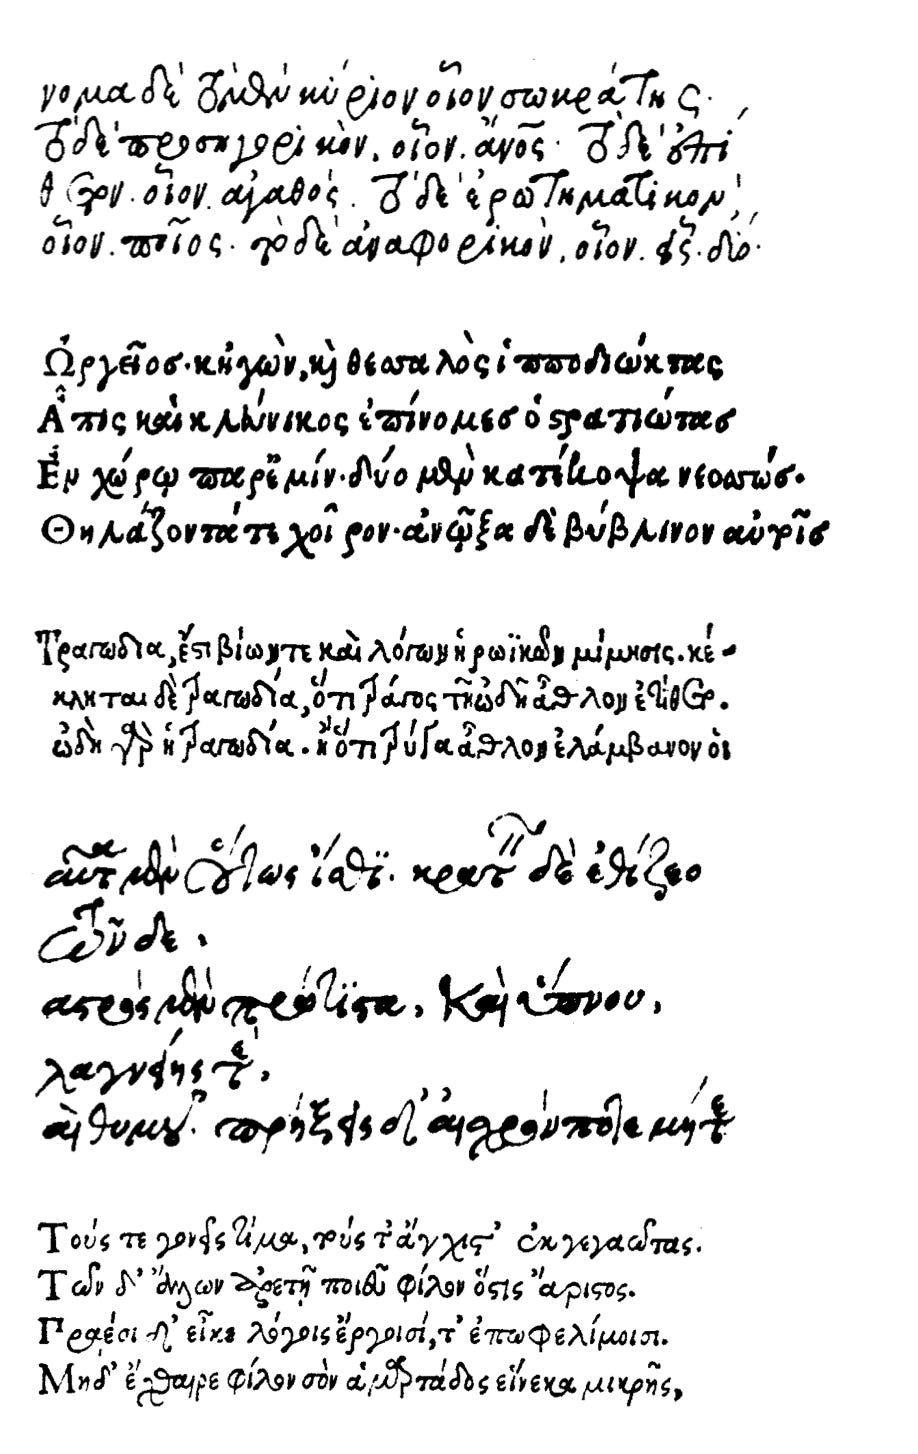 νομα δὲ τὸ μὲν κύριον οἷον σωκράτης.
τὸ δὲ προσηγορικὸν, οἷον. ἄνος· τὸ δὲ ἐπί
θετον. οἷον. ἀγαθός. τὸ δὲ ἐρωτηματικὸν,
οἷον. ποῖος. τὸ δὲ ἀναφορικὸν, οἷον.
Ὡργεῖος. κἠγὼν, καὶ θεσσαλὸς ἱπποδιώκτας
Ἆπις καὶ κλεώνικος ἐπίνομες ὁ στρατιώτας
Ἐν χώρῳ παρ' ἐμίν. δύο μὲν κατέκοψα νεοσσώς.
Θηλάζοντά τε χοῖρον. ἀνῷξα δὲ βύβλινον αὐτοῖς
Τραγωδία, ἔστι βίων τε καὶ λόγων ἡρωϊκῶν μίμησις. κέ-
κληται δὲ τραγωδία, ὅτι τράγος τῇ ὠδῇ ἆθλον ἐτίθετο.
ὠδὴ γὰρ ἡ τραγωδία. ἢ ὅτι τρύγα ἆθλον ἐλάμβανον οἱ
ταῦτα μὲν οὕτως ἴσθι. κρατεῖν δὲ ἐθίζεο
τῶνδε.
γαστρὸς μὲν πρώτιστα, καὶ ὕπνου,
λαγνείης τε,
καὶ θυμοῦ. πρήξεις δ' αἰσχρόν ποτε μήτε
Τούς τε γονεῖς τίμα, τούς τ' ἄγχιστ' ἐκγεγαῶτας.
Τῶν δ' ἄλλων ἀρετῇ ποιεῦ φίλον ὅστις ἄριστος.
Πραέσι δ' εἶκε λόγοις ἔργοισί, τ' ἐπωφελίμοισι.
Μηδ' ἔχθαιρε φίλον σὸν ἁμαρτάδος εἵνεκα μικρῆς,